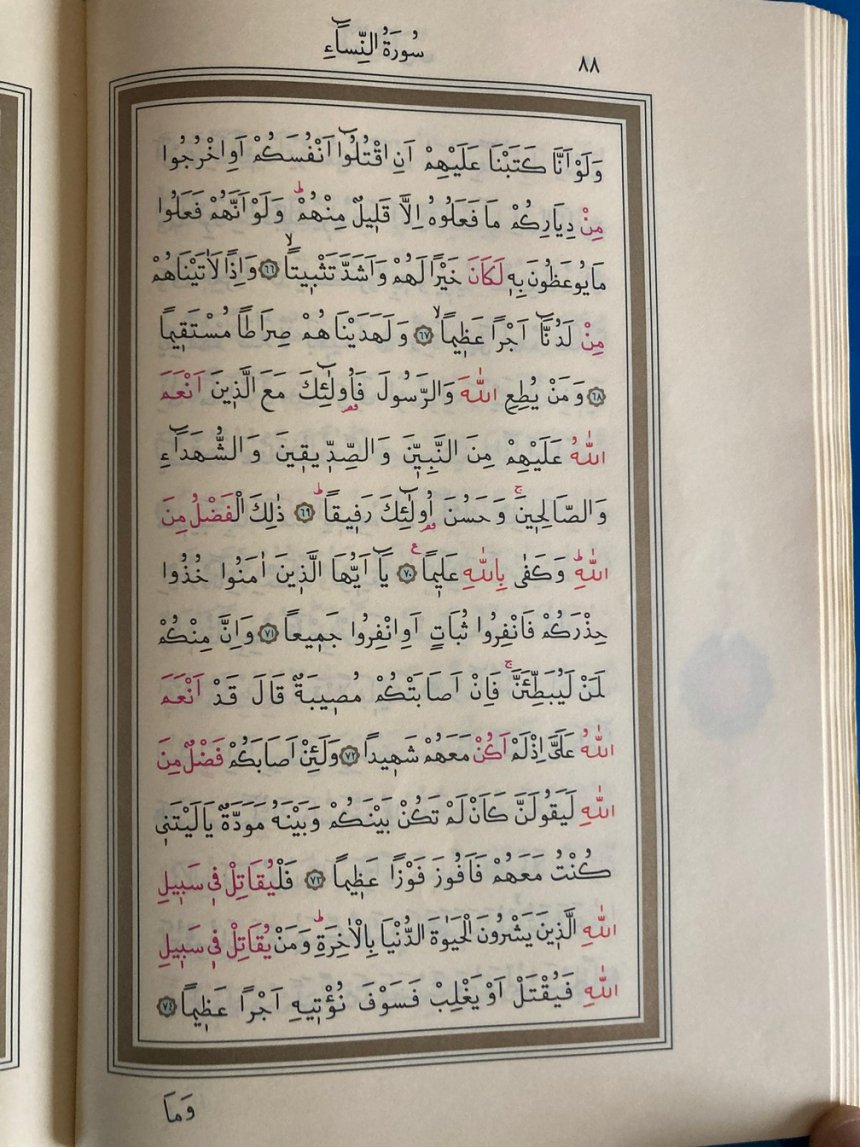 سُورَةُ النِّسَٓاءِ
٨٨
وَلَوْ اَنَّا كَتَبْنَا عَلَيْهِمْ اَنِ اقْتُلُٓوا اَنْفُسَكُمْ اَوِ اخْرُجُوا
مِنْ دِيَارِكُمْ مَا فَعَلُوهُ اِلَّا قَلٖيلٌ مِنْهُمْؕ وَلَوْ اَنَّهُمْ فَعَلُوا
مَا يُوعَظُونَ بِهٖ لَكَانَ خَيْرًا لَهُمْ وَاَشَدَّ تَثْبٖيتًاۙ ﴿٦٦﴾ وَاِذًا لَاٰتَيْنَاهُمْ
مِنْ لَدُنَّٓا اَجْرًا عَظٖيمًاۙ ﴿٦٧﴾ وَلَهَدَيْنَاهُمْ صِرَاطًا مُسْتَقٖيمًا
﴿٦٨﴾ وَمَنْ يُطِعِ اللّٰهَ وَالرَّسُولَ فَاُو۬لٰٓئِكَ مَعَ الَّذٖينَ اَنْعَمَ
اللّٰهُ عَلَيْهِمْ مِنَ النَّبِيّٖنَ وَالصِّدّٖيقٖينَ وَالشُّهَدَٓاءِ
وَالصَّالِحٖينَۚ وَحَسُنَ اُو۬لٰٓئِكَ رَفٖيقًاؕ ﴿٦٩﴾ ذٰلِكَ الْفَضْلُ مِنَ
اللّٰهِؕ وَكَفٰى بِاللّٰهِ عَلٖيمًا ع ﴿٧٠﴾ يَٓا اَيُّهَا الَّذٖينَ اٰمَنُوا خُذُوا
حِذْرَكُمْ فَانْفِرُوا ثُبَاتٍ اَوِ انْفِرُوا جَمٖيعًا ﴿٧١﴾ وَاِنَّ مِنْكُمْ
لَمَنْ لَيُبَطِّئَنَّۚ فَاِنْ اَصَابَتْكُمْ مُصٖيبَةٌ قَالَ قَدْ اَنْعَمَ
اللّٰهُ عَلَيَّ اِذْ لَمْ اَكُنْ مَعَهُمْ شَهٖيدًا ﴿٧٢﴾ وَلَئِنْ اَصَابَكُمْ فَضْلٌ مِنَ
اللّٰهِ لَيَقُولَنَّ كَاَنْ لَمْ تَكُنْ بَيْنَكُمْ وَبَيْنَهُ مَوَدَّةٌ يَا لَيْتَنٖي
كُنْتُ مَعَهُمْ فَاَفُوزَ فَوْزًا عَظٖيمًا ﴿٧٣﴾ فَلْيُقَاتِلْ فٖي سَبٖيلِ
اللّٰهِ الَّذٖينَ يَشْرُونَ الْحَيٰوةَ الدُّنْيَا بِالْاٰخِرَةِؕ وَمَنْ يُقَاتِلْ فٖي سَبٖيلِ
اللّٰهِ فَيُقْتَلْ اَوْ يَغْلِبْ فَسَوْفَ نُؤْتٖيهِ اَجْرًا عَظٖيمًا ﴿٧٤﴾
وَمَا